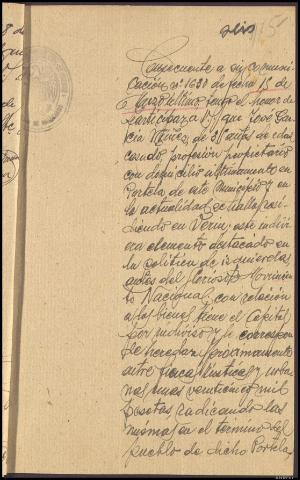 seis
15
Consecuente a su comuni-
cación nº 1680 de fecha 15 de
Marzo último tengo el honor de
participar a V. que José Gar-
cia Núñez, de 51 años de edad
casado, profesión propietario
con domicilio ultimamente en
Portela de este Municipio y en
la actualidad se halla resi-
diendo en Verin, este indivi
era elemento destacado en
la politica de izquierdas
antes del glorioso Movimien-
to Nacional, con relación
a los bienes tiene el Capital
por indiviso y le correspon-
de heredar aproximadamente
entre fincas rusticas y urba-
nas unas veinticinco mil
pesetas, radicando las
mismas en el termino del
pueblo de dicho Portela